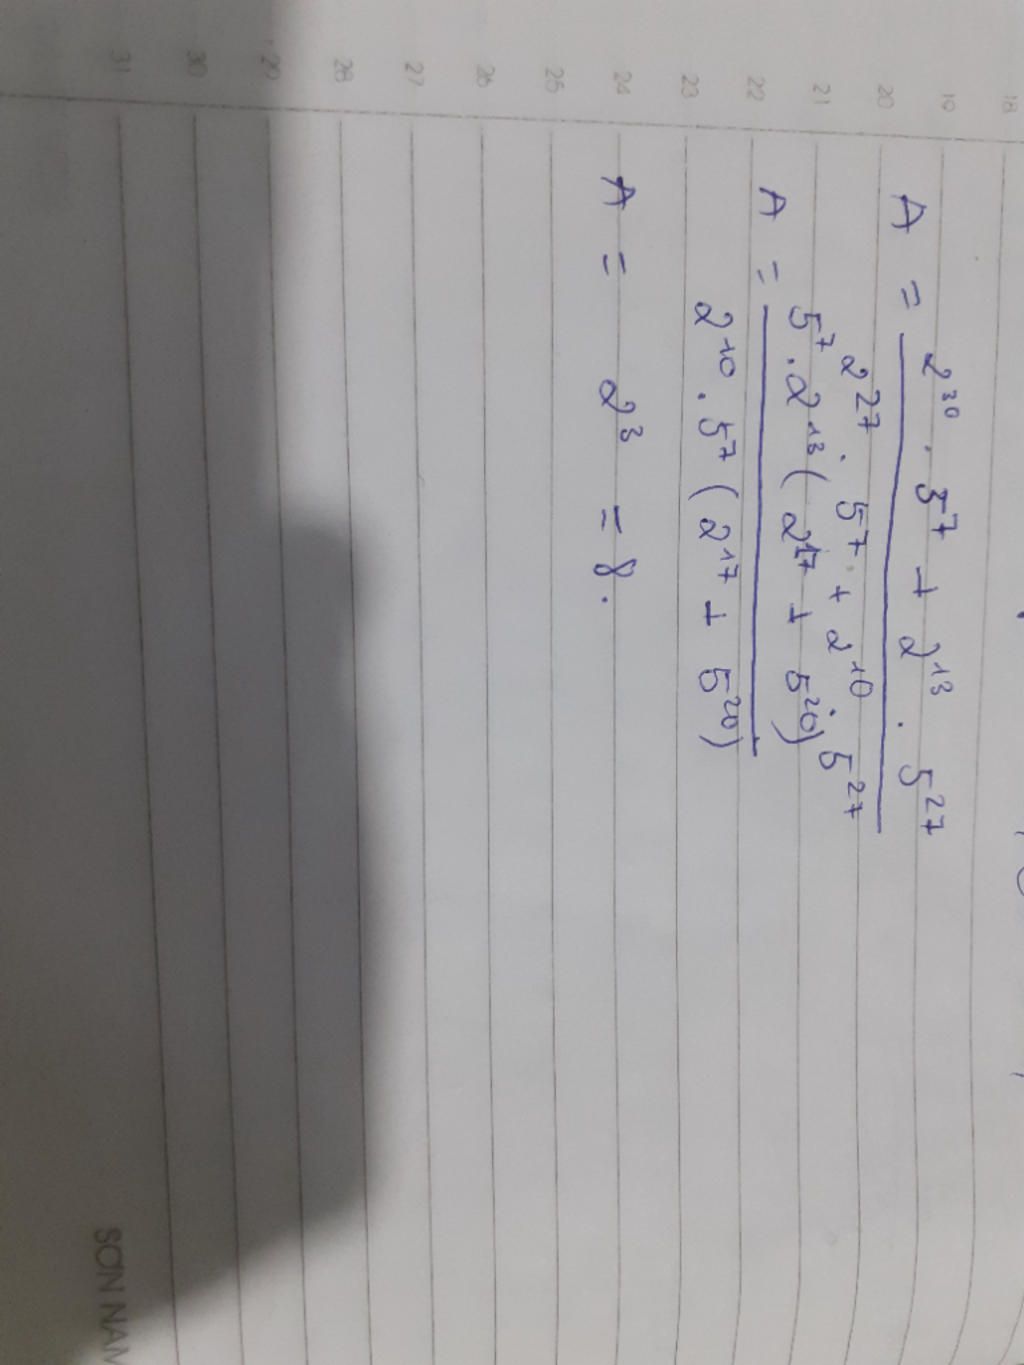 18
19
20
21
22
23
24
25
26
27
28
29
30
31
A = 2³⁰ . 5⁷ + 2¹³ . 5²⁷
2²⁷ . 5⁷ + 2¹⁰ . 5²⁷
A = 5⁷ . 2¹³ ( 2¹⁷ + 5²⁰)
2¹⁰ . 5⁷ ( 2¹⁷ + 5²⁰)
A = 2³ = 8.
SƠN NAM